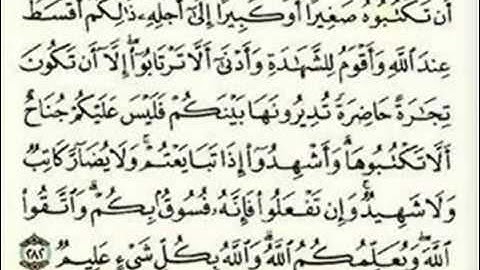 أَن تَكْتُبُوهُ صَغِيرًا أَوْ كَبِيرًا إِلَىٰٓ أَجَلِهِۦ ذَٰلِكُمْ أَقْسَطُ
عِندَ ٱللَّهِ وَأَقْوَمُ لِلشَّهَٰدَةِ وَأَدْنَىٰٓ أَلَّا تَرْتَابُوٓا۟ ۖ إِلَّآ أَن تَكُونَ
تِجَٰرَةً حَاضِرَةً تُدِيرُونَهَا بَيْنَكُمْ فَلَيْسَ عَلَيْكُمْ جُنَاحٌ
أَلَّا تَكْتُبُوهَا ۗ وَأَشْهِدُوٓا۟ إِذَا تَبَايَعْتُمْ ۚ وَلَا يُضَآرَّ كَاتِبٌ
وَلَا شَهِيدٌ ۚ وَإِن تَفْعَلُوا۟ فَإِنَّهُۥ فُسُوقٌۢ بِكُمْ ۗ وَٱتَّقُوا۟
ٱللَّهَ ۖ وَيُعَلِّمُكُمُ ٱللَّهُ ۗ وَٱللَّهُ بِكُلِّ شَىْءٍ عَلِيمٌ ٢٨٢